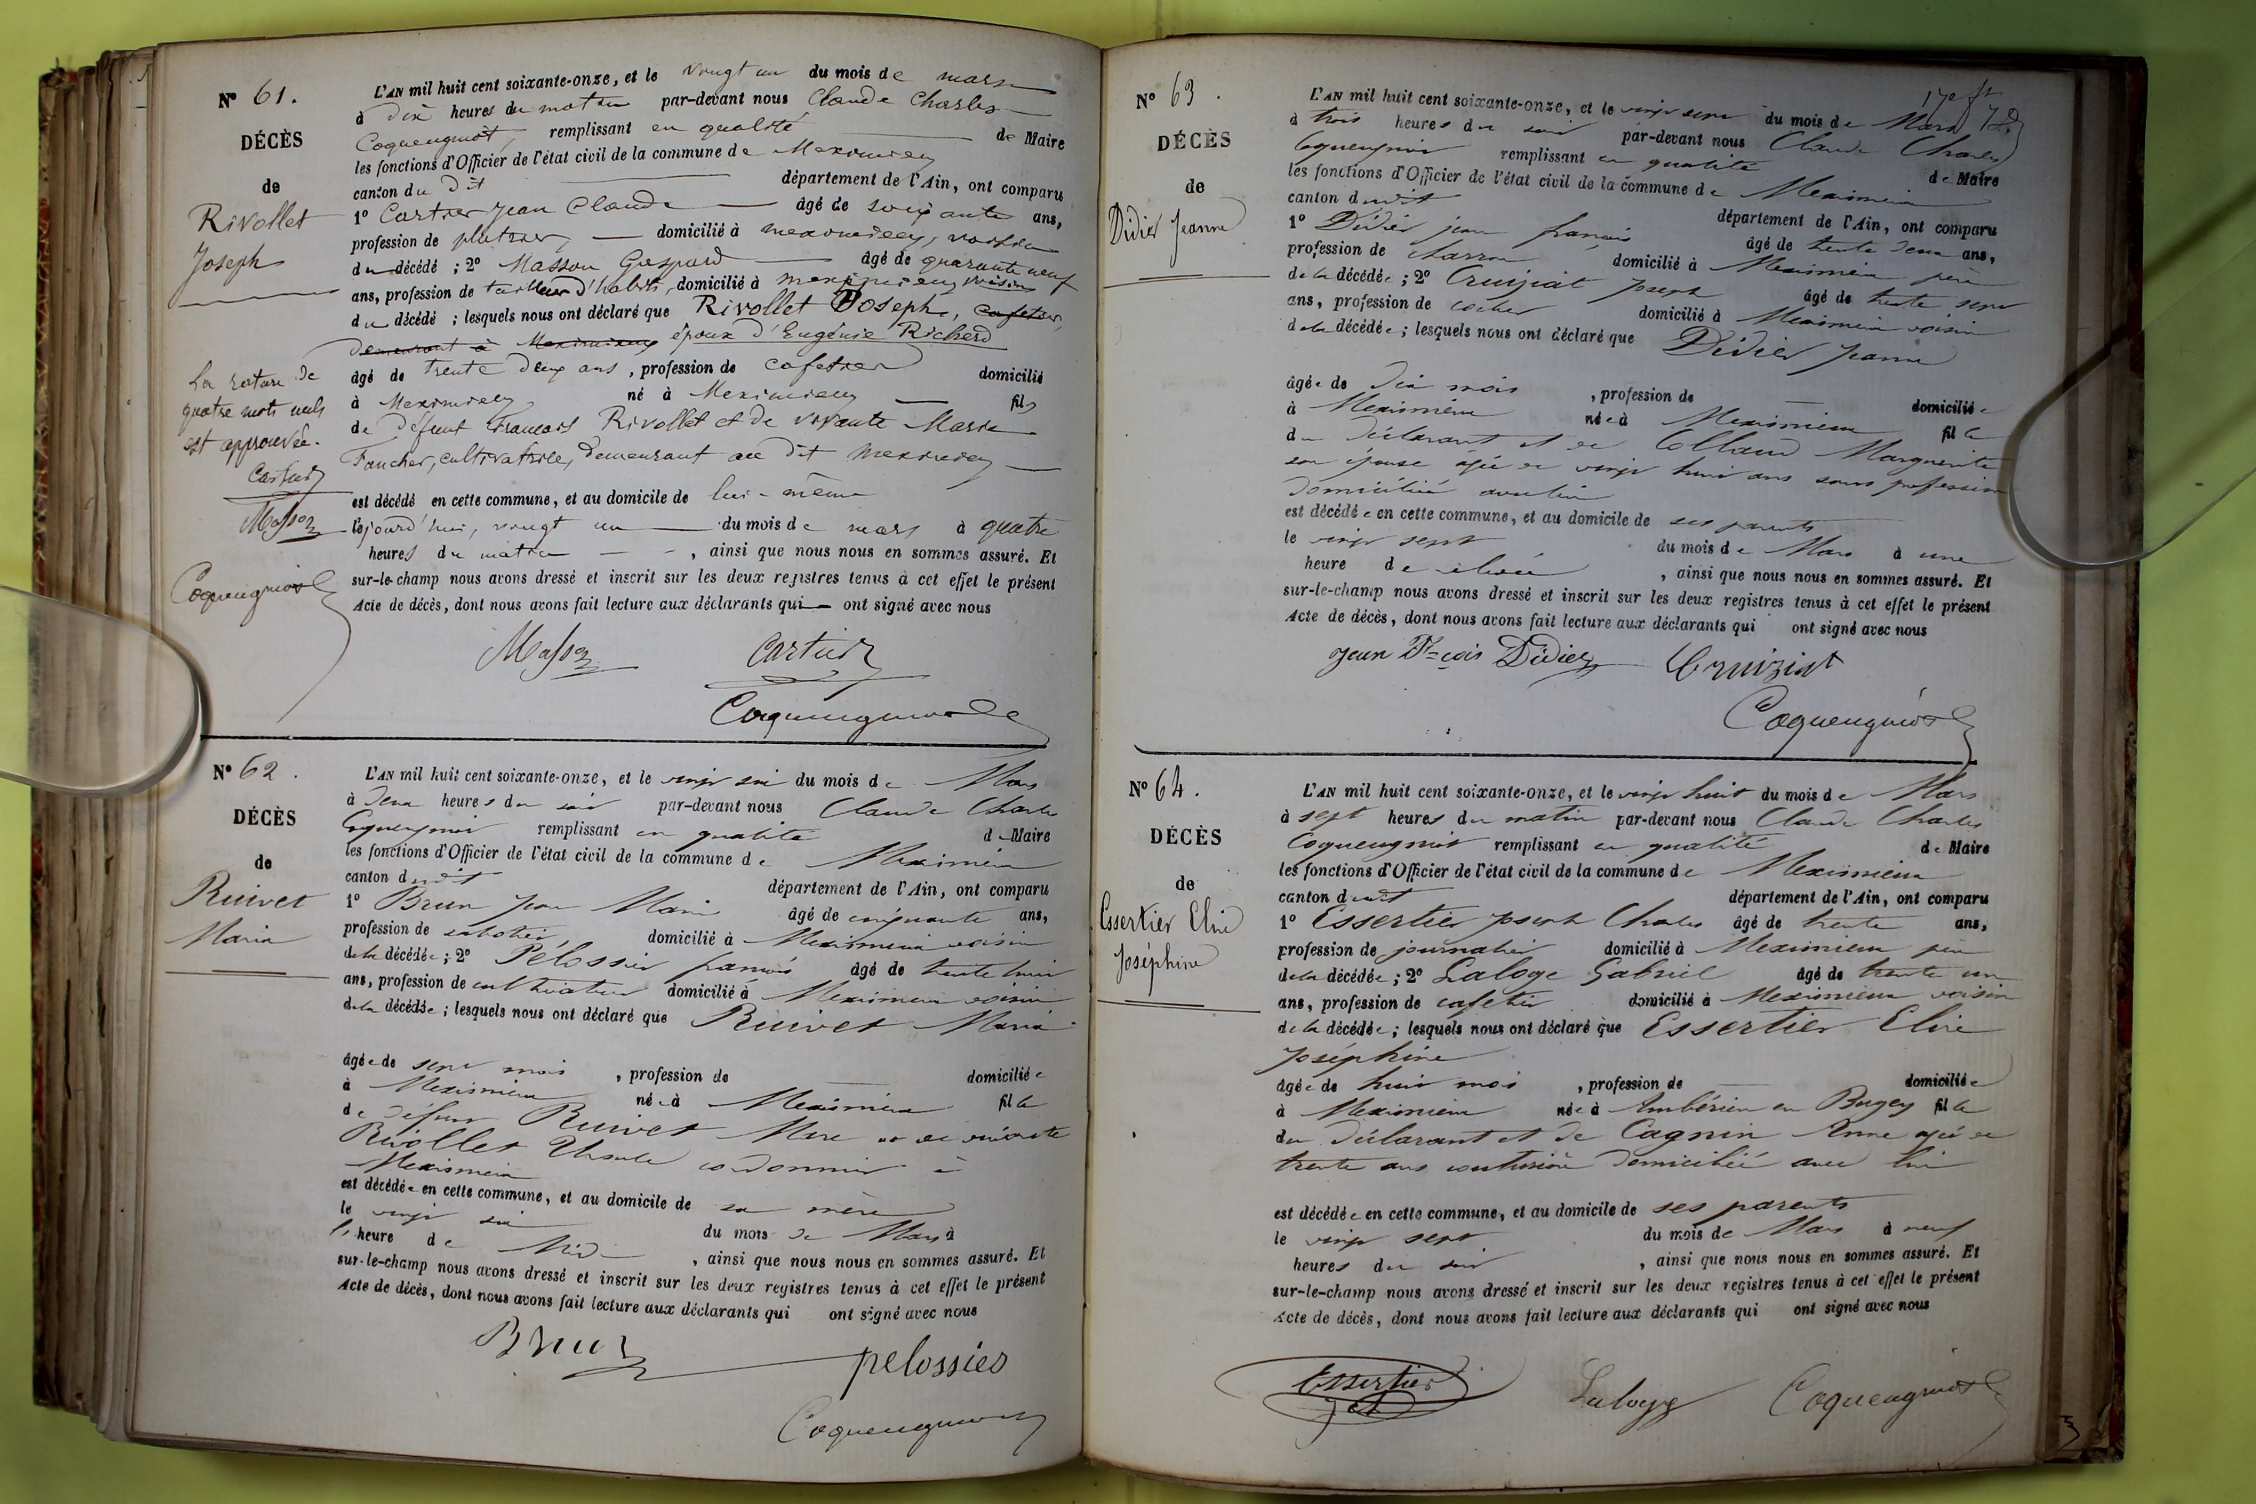 N° 61.
DÉCÈS
de
Rivollet
Joseph
La rature de
quatre mots nuls
est approuvée.
Cartier
Masson
Coquengniot
L'AN mil huit cent soixante-onze, et le vingt un du mois de mars
à dix heures du matin par-devant nous Claude Charles
Coquengniot, remplissant en qualité de Maire
les fonctions d'Officier de l'état civil de la commune de Meximieux
canton du dit département de l'Ain, ont comparu
1° Cartier Jean Claude âgé de soixante ans,
profession de platrier, domicilié à Meximieux, voisin
du décédé ; 2° Masson Gaspard âgé de quarante neuf
ans, profession de tailleur d'habits, domicilié à meximieux voisin
du décédé ; lesquels nous ont déclaré que Rivollet Joseph, cafetier,
demeurant à Meximieux époux d'Eugénie Richerd
âgé de trente deux ans, profession de cafetier domicilié
à Meximieux né à Meximieux fils
de défunt François Rivollet et de vivante Marie
Faucher, cultivatrice, demeurant au dit Meximieux
est décédé en cette commune, et au domicile de lui-même
le jourd'hui, vingt un du mois de mars à quatre
heures du matin, ainsi que nous nous en sommes assuré. Et
sur-le-champ nous avons dressé et inscrit sur les deux registres tenus à cet effet le présent
Acte de décès, dont nous avons fait lecture aux déclarants qui ont signé avec nous
Masson Cartier
Coquengniot
N° 62.
DÉCÈS
de
Ruivet
Maria
L'AN mil huit cent soixante-onze, et le vingt six du mois de Mars
à deux heures du soir par-devant nous Claude Charles
Coquengniot remplissant en qualité de Maire
les fonctions d'Officier de l'état civil de la commune de Meximieux
canton dudit département de l'Ain, ont comparu
1° Brun Jean Marie âgé de cinquante ans,
profession de sabotier domicilié à Meximieux voisin
de la décédée ; 2° Pélossier françois âgé de trente huit
ans, profession de cultivateur domicilié à Meximieux voisin
de la décédée ; lesquels nous ont déclaré que Ruivet Maria
âgée de sept mois, profession de domiciliée
à Meximieux née à Meximieux fille
de défunt Ruivet Marc et de vivante
Rivollet Ursule cordonnier à
Meximieux
est décédée en cette commune, et au domicile de sa mère
le vingt six du mois de Mars à
l'heure de Midi, ainsi que nous nous en sommes assuré. Et
sur-le-champ nous avons dressé et inscrit sur les deux registres tenus à cet effet le présent
Acte de décès, dont nous avons fait lecture aux déclarants qui ont signé avec nous
Brun pelossier
Coquengniot
N° 63.
DÉCÈS
de
Didier Jeanne
17e ft
L'AN mil huit cent soixante-onze, et le vingt sept du mois de Mars
à trois heures du soir par-devant nous Claude Charles
Coquengniot remplissant en qualité de Maire
les fonctions d'Officier de l'état civil de la commune de Meximieux
canton dudit département de l'Ain, ont comparu
1° Didier jean françois âgé de trente deux ans,
profession de charron domicilié à Meximieux père
de la décédée ; 2° Cruiziat Joseph âgé de trente sept
ans, profession de cocher domicilié à Meximieux voisin
de la décédée ; lesquels nous ont déclaré que Didier Jeanne
âgée de dix mois, profession de domiciliée
à Meximieux née à Meximieux fille
du déclarant et de Colland Marguerite
son épouse âgée de vingt huit ans sans profession
domiciliée avec lui
est décédée en cette commune, et au domicile de ses parents
le vingt sept du mois de Mars à une
heure de, ainsi que nous nous en sommes assuré. Et
sur-le-champ nous avons dressé et inscrit sur les deux registres tenus à cet effet le présent
Acte de décès, dont nous avons fait lecture aux déclarants qui ont signé avec nous
Jean F=çois Didier Cruiziat
Coquengniot
N° 64.
DÉCÈS
de
Essertier Elise
Joséphine
L'AN mil huit cent soixante-onze, et le vingt huit du mois de Mars
à sept heures du matin par-devant nous Claude Charles
Coquengniot remplissant en qualité de Maire
les fonctions d'Officier de l'état civil de la commune de Meximieux
canton dudit département de l'Ain, ont comparu
1° Essertier Joseph Charles âgé de trente ans,
profession de journalier domicilié à Meximieux père
de la décédée ; 2° Laloge Gabriel âgé de trente un
ans, profession de cafetier domicilié à Meximieux voisin
de la décédée ; lesquels nous ont déclaré que Essertier Elise
Joséphine
âgée de huit mois, profession de domiciliée
à Meximieux née à Ambérieu en Bugey fille
du déclarant et de Cagnin Anne âgée de
trente ans couturière domiciliée avec lui
est décédée en cette commune, et au domicile de ses parents
le vingt sept du mois de Mars à neuf
heures du soir, ainsi que nous nous en sommes assuré. Et
sur-le-champ nous avons dressé et inscrit sur les deux registres tenus à cet effet le présent
Acte de décès, dont nous avons fait lecture aux déclarants qui ont signé avec nous
Essertier Laloge Coquengniot